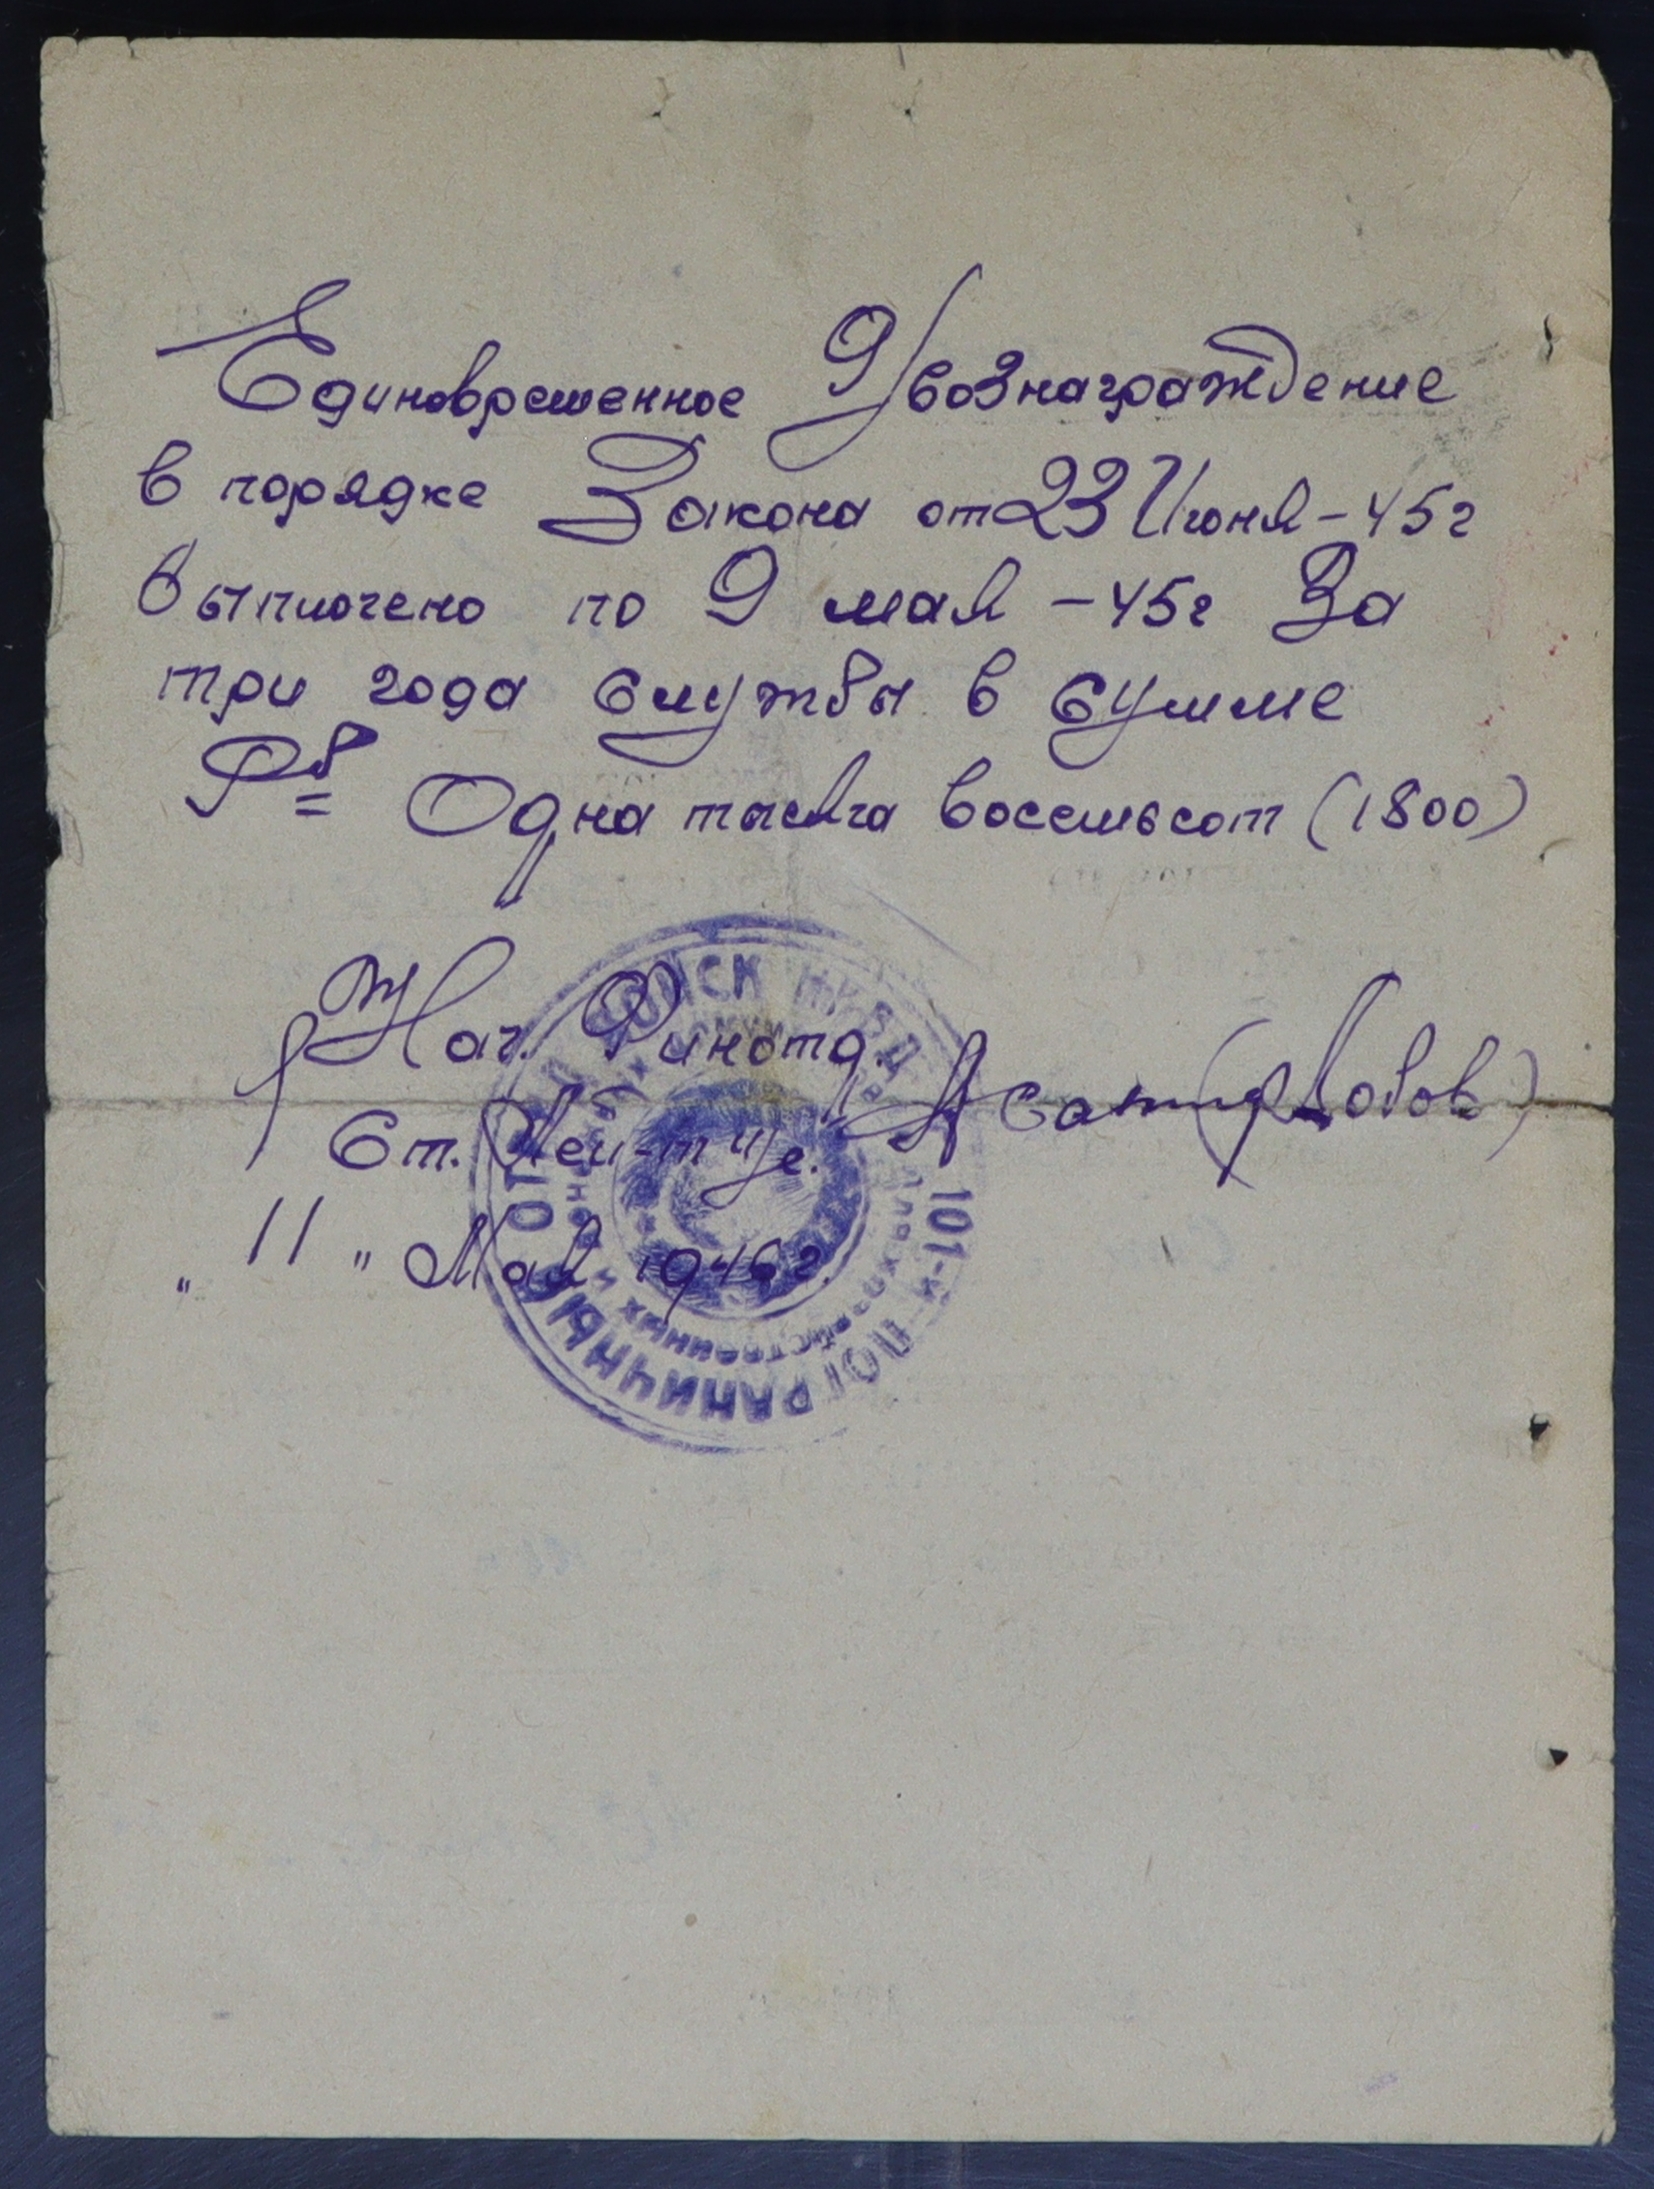 Единовременное вознаграждение
в порядке Закона от 23 Июня-45г
выплочено по 9 мая -45г За
три года службы в сумме
Рб= Одна тысяча восемьсот (1800)
Нач. Финотд.
Ст. Лей-т (Лобов)
"11" Мая 1946г.
101-й ПОГРАНИЧНЫЙ ОТРЯД ВОЙСК НКВД